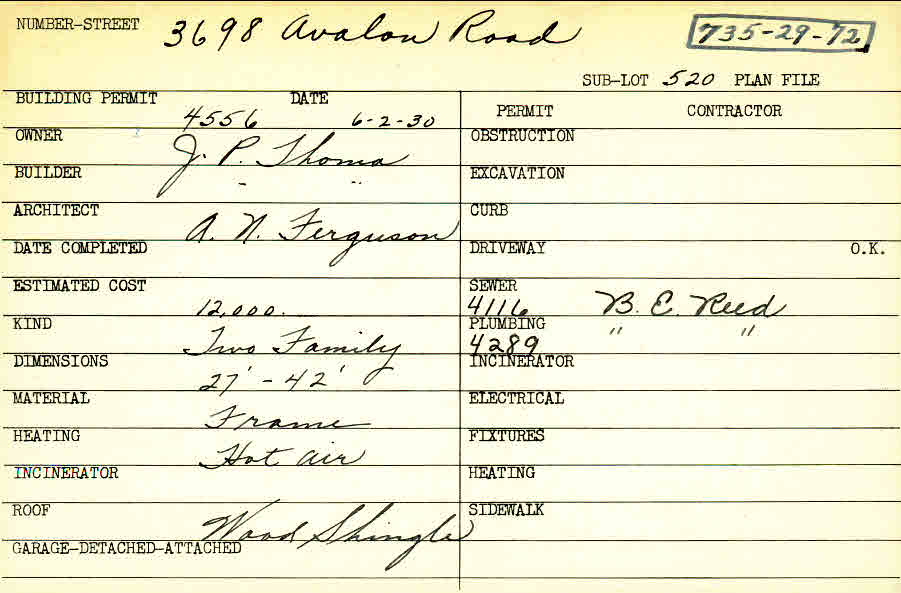 NUMBER-STREET 3698 Avalon Road 735-29-72
SUB-LOT 520 PLAN FILE
BUILDING PERMIT 4556 DATE 6-2-30
PERMIT CONTRACTOR
OWNER J. P. Thoma
OBSTRUCTION
BUILDER " "
EXCAVATION
ARCHITECT A. N. Ferguson
CURB
DATE COMPLETED
DRIVEWAY O.K.
ESTIMATED COST 12,000.
SEWER 4116 B. E. Reed
KIND Two Family
PLUMBING 4289 " "
DIMENSIONS 27' - 42'
INCINERATOR
MATERIAL Frame
ELECTRICAL
HEATING Hot air
FIXTURES
INCINERATOR
HEATING
ROOF Wood Shingle
SIDEWALK
GARAGE-DETACHED-ATTACHED